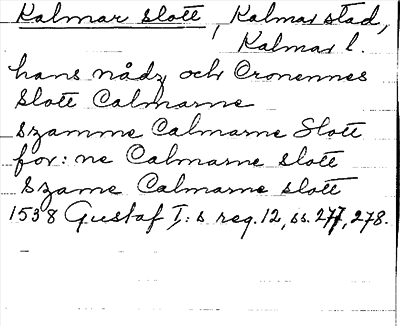 Kalmar slott, Kalmar stad,
Kalmar l.
hans nådz och Cronennes
Slott Calmarne
szamme Calmarne Slott
for: ne Calmarne slott
szame Calmarne slott
1538 Gustaf I: s reg. 12, ss. 277, 278.